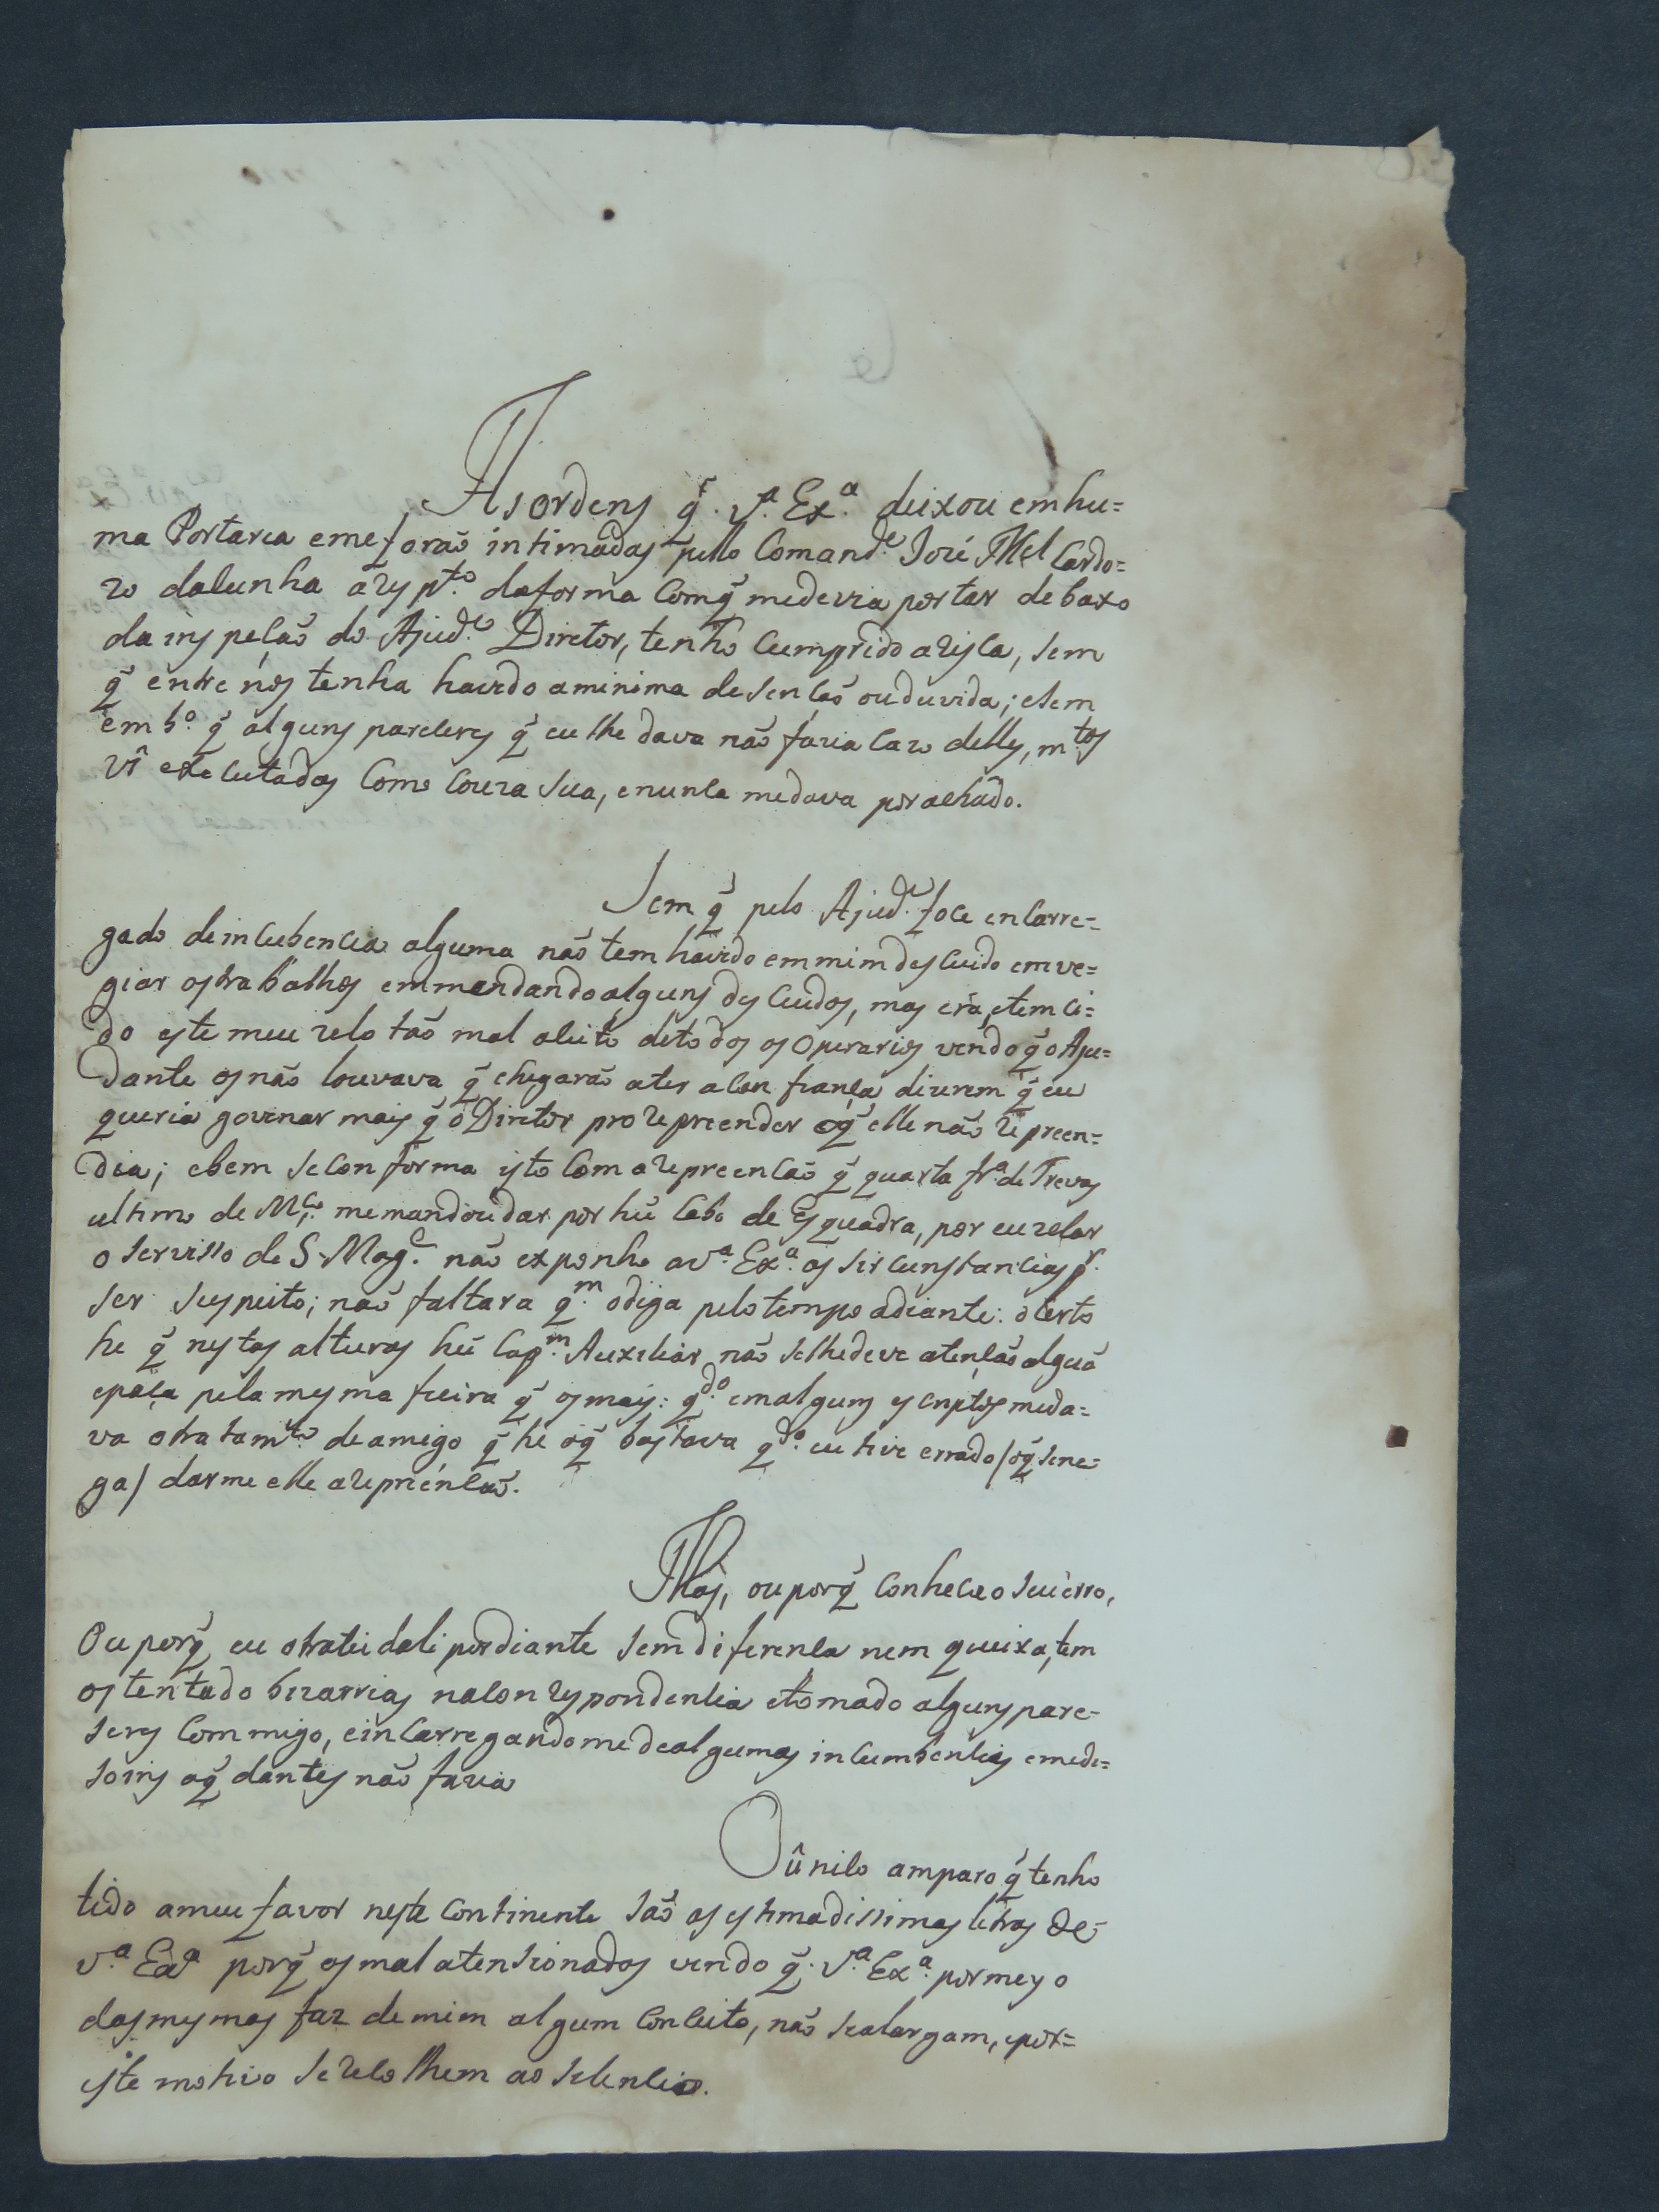 As ordens q̃. V.ª Ex.ª deixou em hu=
ma Portaria e me forão intimadas pello Comand.e Jozé Mel Cardo=
zo da Cunha a resp.to da forma Com q̃ me devia portar debaxo
da inspeção do Ajud.e Diretor, tenho Cumprido a risca, sem
q̃ entre nos tenha havido a minima desenção ou duvida; e sem
emb.º q̃ alguns pareceres q̃ eu lhe dava não fazia Cazo delles, m.tos
vî executados Como Couza sua, e nunca me dava por achado.
Sem q̃ pelo Ajud.e foce encarre=
gado de incubencia alguma não tem havido em mim descuido em ve=
giar os trabalhos emmendando alguns descuidos, mas era, e tem ci=
do este meu zelo tão mal aceito de todos os Operarios vendo q̃ o Aju=
dante os não louvava q̃ chegarão a ter a confiança dizerem q̃ eu
queria governar mais q̃ o Diretor pro repreender o q̃ elle não repreen=
dia; e bem se Conforma isto Com a repreenção q̃ quarta fr.ª de Trevas
ultimo de M.ço me mandou dar por hũ Cabo de esquadra, por eu zelar
o servisso de S. Mag.e não exponho a V.ª Ex.ª as sircunstancias p.r
ser suspeito; não faltara q.m o diga pelo tempo adiante: o certo
he q̃ nestas alturas hũ Cap.m Auxiliar não se lhe deve atenção alguã
e paça pela mesma fieira q̃ os mais: q.do em alguns escriptos me da=
va o tratam.to de amigo q̃ he o q̃ bastava q.do eu tive errado / o q̃ se ne=
ga / dar me elle a repriencão.
Mas, ou porq̃ Conheceo o seu erro,
Ou porq̃ eu o tratei dali por diante sem diferença nem queixa, tem
ostentado bizarrias na Conrespondencia e tomado alguns pare-
seres Commigo, e incarregandome de algumas incumbencias e mede=
soins o q̃ dantes não fazia
O ûnico amparo q̃ tenho
tido a meu favor neste Continente são as estimadissimas letras de
V.ª Ex.ª porq̃ os mal atensionados vendo q̃. V.ª Ex.ª por meyo
das mesmas faz de mim algum Conceito, não se alargam, e por=
este motivo se recolhem ao selencio.